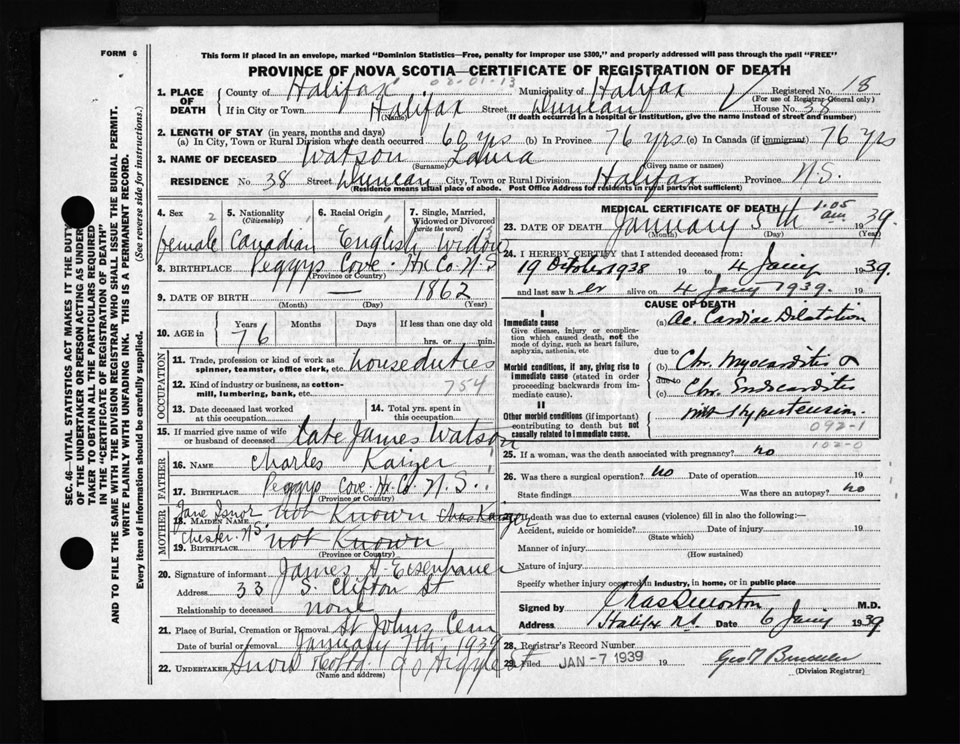 FORM 6
This form if placed in an envelope, marked "Dominion Statistics—Free, penalty for improper use $300," and properly addressed will pass through the mail "FREE"
PROVINCE OF NOVA SCOTIA—CERTIFICATE OF REGISTRATION OF DEATH
02-01-13
1. PLACE OF DEATH County of Halifax Municipality of Halifax Registered No. 18
(For use of Registrar-General only)
If in City or Town. Halifax Street Duncan House No. 38
(Name) (If death occurred in a hospital or institution, give the name instead of street and number)
2. LENGTH OF STAY (in years, months and days)
(a) In City, Town or Rural Division where death occurred 60 yrs (b) In Province 76 yrs (c) In Canada (if immigrant) 76 yrs
3. NAME OF DECEASED Watson Laura
(Surname) (Given name or names)
RESIDENCE No 38 Street Duncan City, Town or Rural Division Halifax Province N.S.
(Residence means usual place of abode. Post Office Address for residents in rural parts not sufficient)
4. Sex 2 female
5. Nationality (Citizenship) Canadian
6. Racial Origin English
7. Single, Married, Widowed or Divorced (write the word) Widow
8. BIRTHPLACE Peggys Cove. Hx. Co. N.S
(Province or Country)
9. DATE OF BIRTH — 1862
(Month) (Day) (Year)
10. AGE in Years 76 Months Days If less than one day old
hrs. or min.
OCCUPATION
11. Trade, profession or kind of work as spinner, teamster, office clerk, etc. house duties
12. Kind of industry or business, as cotton-mill, lumbering, bank, etc. 754
13. Date deceased last worked at this occupation
14. Total yrs. spent in this occupation
15. If married give name of wife or husband of deceased late James Watson
FATHER
16. NAME Charles Kaizer
17. BIRTHPLACE Peggys Cove. Hx. Co. N.S.
(Province or Country)
MOTHER
18. MAIDEN NAME Jane not Known Chas Kaizer
19. BIRTHPLACE Chester. N.S. not Known
(Province or Country)
20. Signature of informant James A. Eisenhauer
Address 33 S. Clifton St
Relationship to deceased none
21. Place of Burial, Cremation or Removal St Johns Cem
Date of burial or removal January 7th. 1939
22. UNDERTAKER Snow
(Name and address)
MEDICAL CERTIFICATE OF DEATH
23. DATE OF DEATH January 5th 1.05 am 1939
(Month) (Day) (Year)
24. I HEREBY CERTIFY that I attended deceased from:
19 October 1938 19 to 4 Jany 1939.
and last saw h er alive on 4 Jany 1939. 19
CAUSE OF DEATH
I
Immediate cause
Give disease, injury or complication which caused death, not the mode of dying, such as heart failure, asphyxia, asthenia, etc
(a) Ac. Cardiac Dilatation
due to
Morbid conditions, if any, giving rise to immediate cause (stated in order proceeding backwards from immediate cause).
(b) Chr. Myocarditis
due to
(c) Chr. Endocarditis
II
Other morbid conditions (if important) contributing to death but not causally related to immediate cause.
Hypertension.
092-1
102-0
25. If a woman, was the death associated with pregnancy? no
26. Was there a surgical operation? No Date of operation 19
State findings Was there an autopsy? no
If death was due to external causes (violence) fill in also the following:—
Accident, suicide or homicide? Date of injury 19
(State which)
Manner of injury
(How sustained)
Nature of injury
Specify whether injury occurred in industry, in home, or in public place
Signed by Chas D Morton M.D.
Address Halifax N.S. Date 6 Jany 1939
28. Registrar's Record Number
29. Filed JAN -7 1939 19
(Division Registrar)
SEC. 46—VITAL STATISTICS ACT MAKES IT THE DUTY
OF THE UNDERTAKER OR PERSON ACTING AS UNDERTAKER TO OBTAIN ALL THE PARTICULARS REQUIRED
IN THE "CERTIFICATE OF REGISTRATION OF DEATH"
AND TO FILE THE SAME WITH THE DIVISION REGISTRAR WHO SHALL ISSUE THE BURIAL PERMIT.
WRITE PLAINLY WITH UNFADING INK. THIS IS A PERMANENT RECORD.
Every item of information should be carefully supplied. (See reverse side for instructions.)